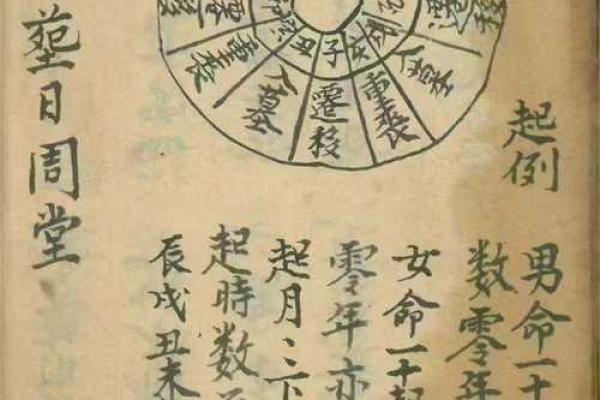 丑
子
亥
戌
重喪
入墓
遷移
重喪
起例
男命一十
数零年
女命一十起
零年亦
起月〻下
起時数
辰戌丑未
塟日周堂